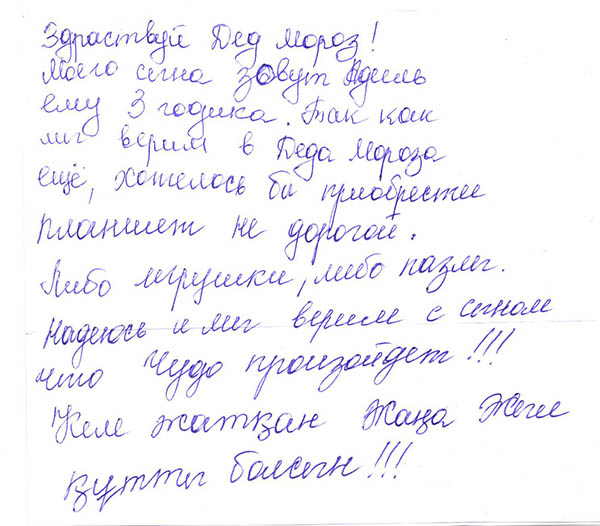 Здраствуй Дед Мороз!
Моего сына зовут Адиль
ему 3 годика. Так как
мы верим в Деда Мороза
ещё, хотелось бы приобрести
планшет не дорогой.
Либо игрушки, либо пазлы.
Надеюсь и мы верим с сыном
что Чудо произойдет!!!
Келе жатқан Жаңа Жылы
құтты болсын!!!